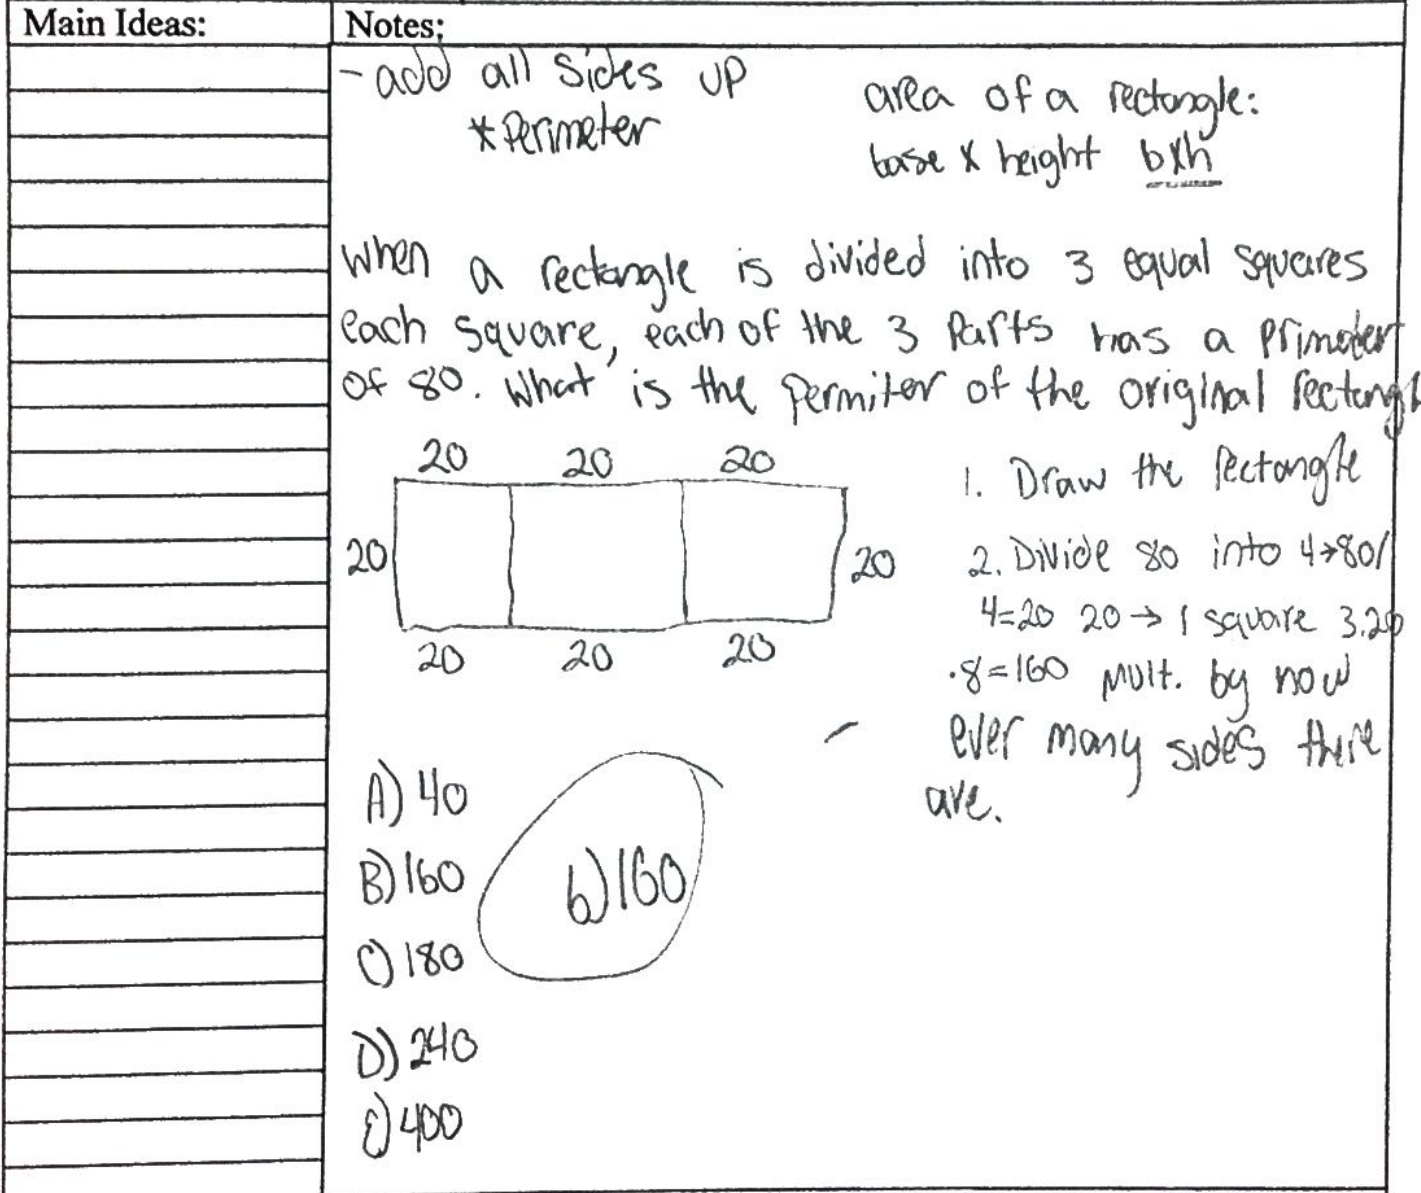 Main Ideas:
Notes:
- add all sides up
* Perimeter
area of a rectangle:
base x height bxh
When a rectangle is divided into 3 equal squares
each square, each of the 3 Parts has a Primeter
of 80. What is the permiter of the original rectangl
20 20 20
20 20
20 20 20
1. Draw the Rectangle
2. Divide 80 into 4→80/
4=20 20→ 1 square 3.20
.8=160 Mult. by now
ever many sides there
are.
A) 40
B) 160
b) 160
C) 180
D) 240
E) 400